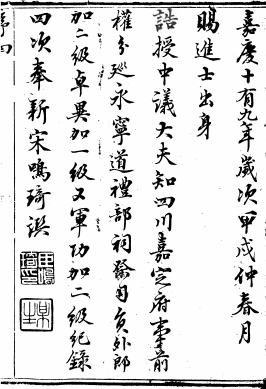 嘉慶十有九年歲次甲戌仲春月
賜進士出身
誥授中議大夫知四川嘉定府事前
權分巡永寧道禮部祠祭司員外郎
加二級卓異加一級又軍功加二級紀錄
四次奉新宋鳴琦譔
序四